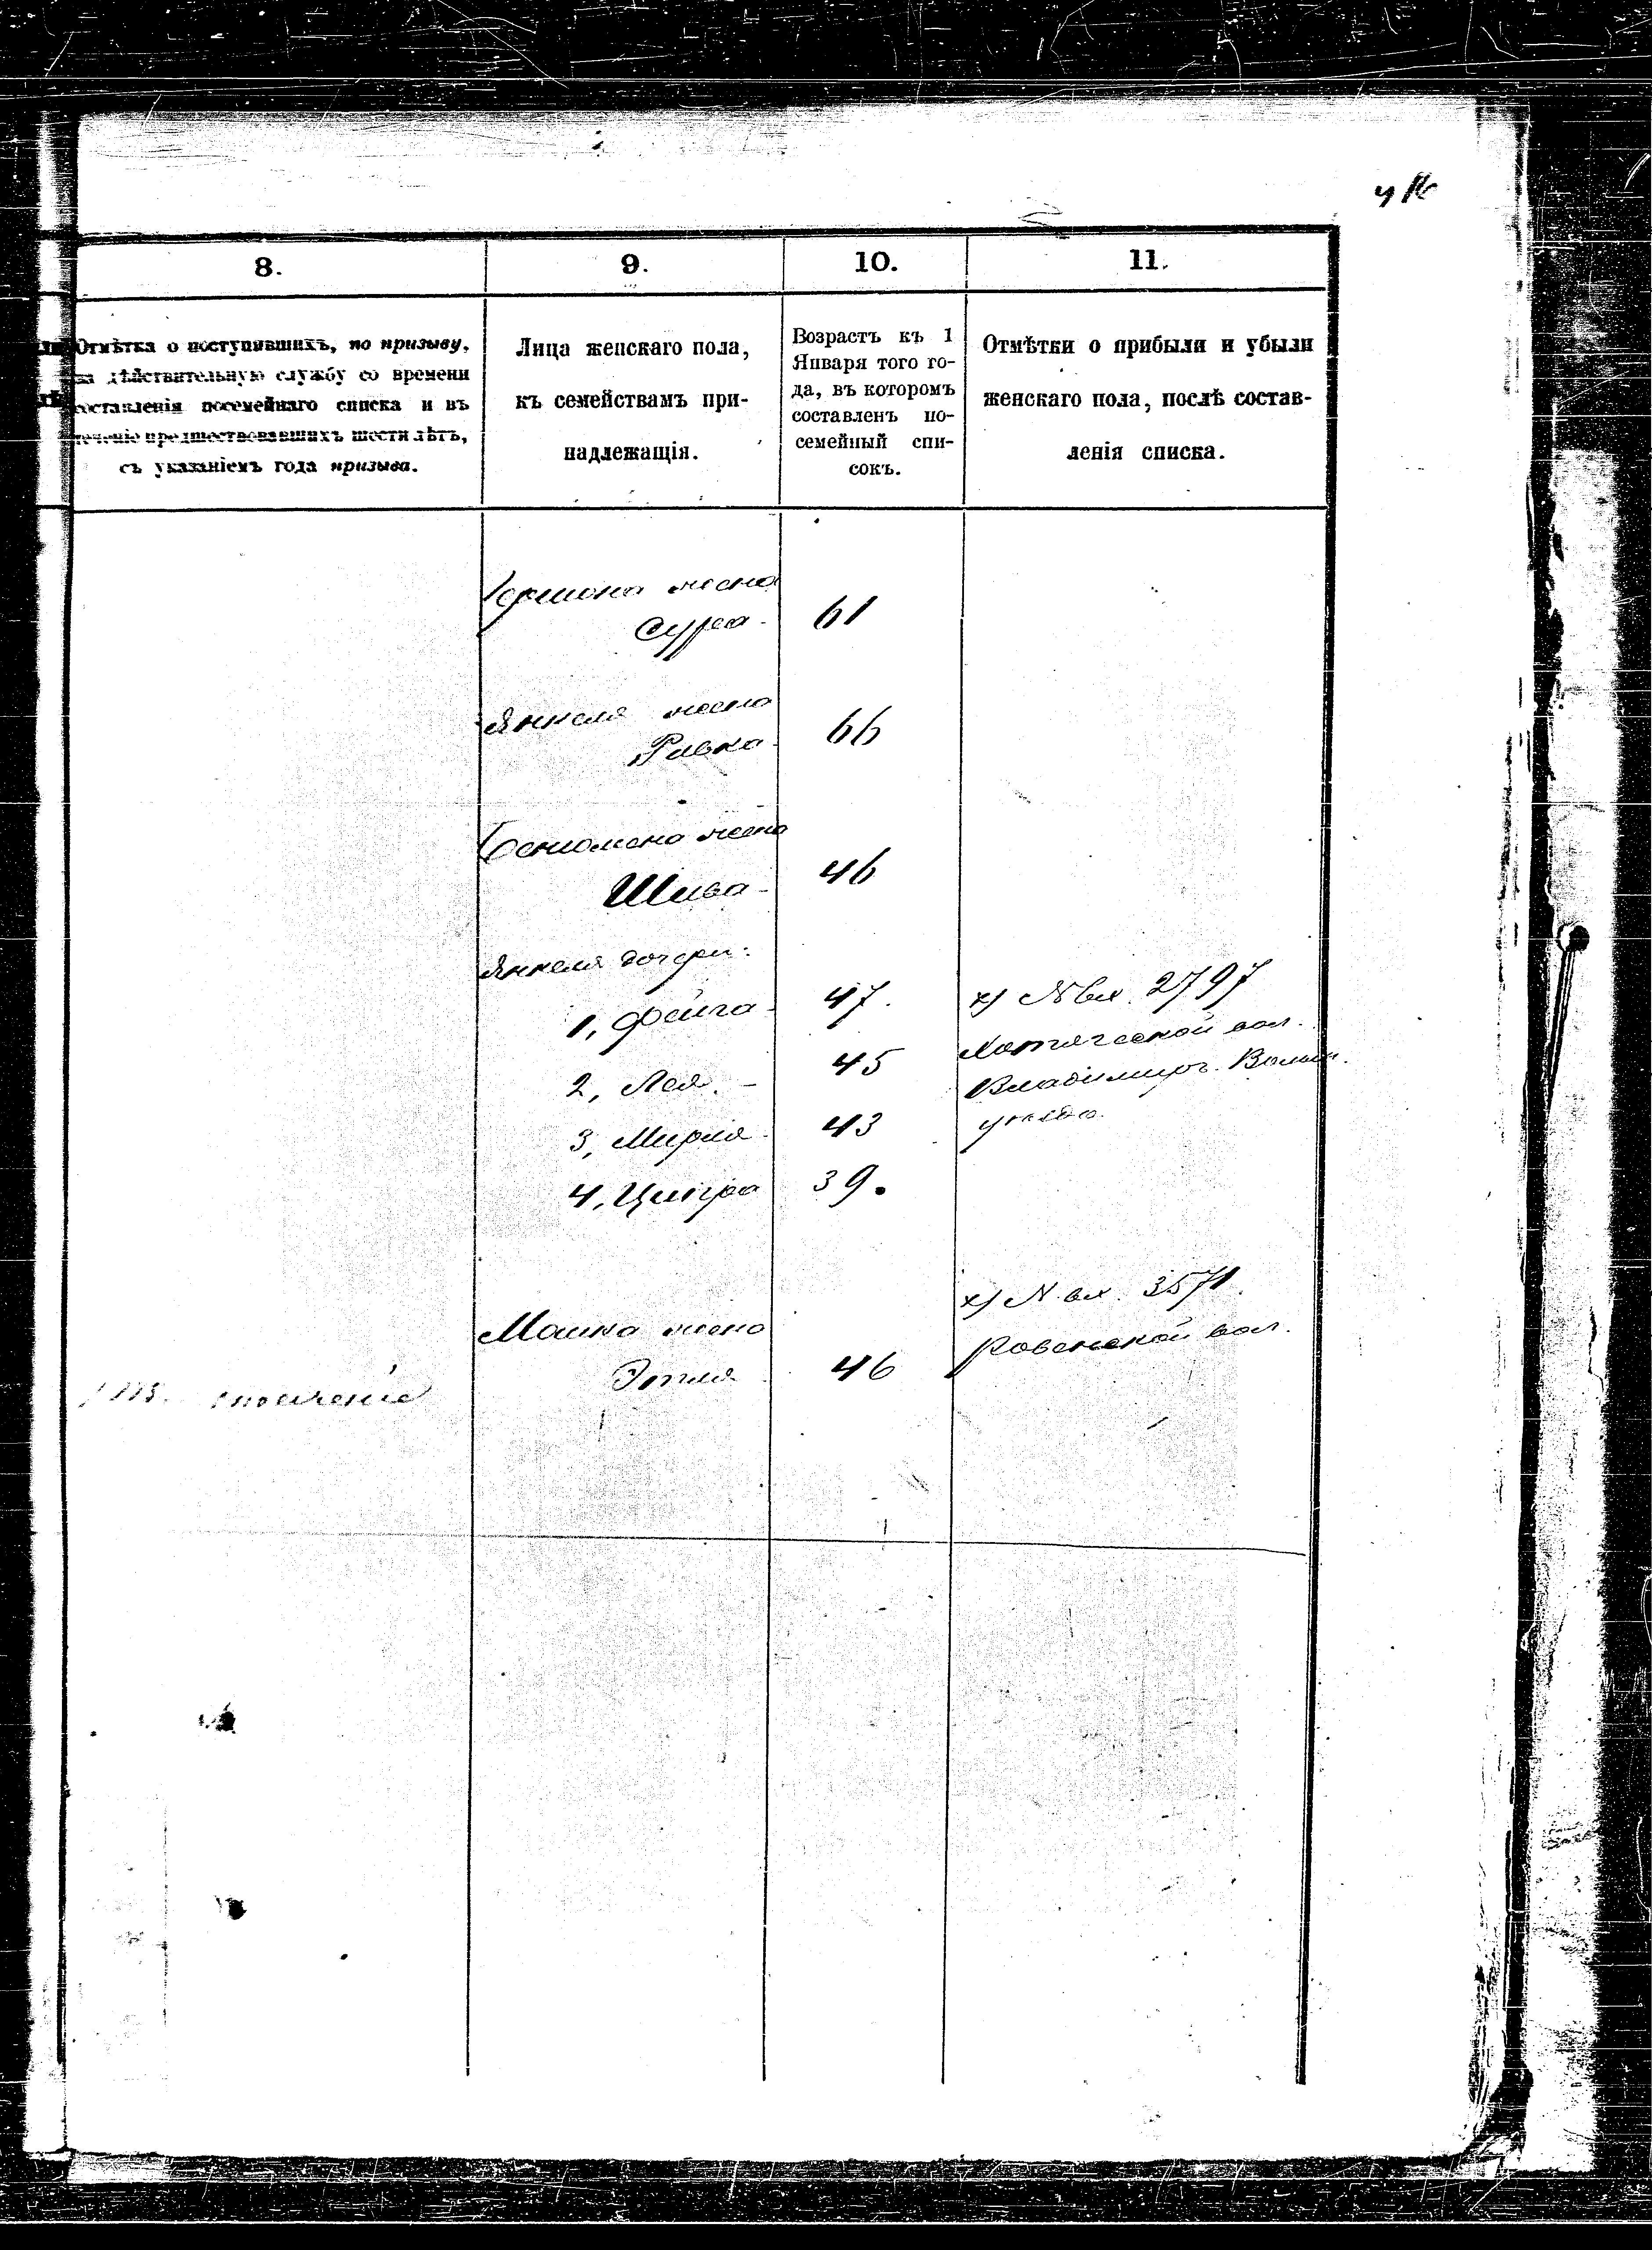 8.
9.
10.
11.
Отмѣтка о поступившихъ, по призыву,
на дѣйствительную службу со времени
составленія посемейнаго списка и въ
теченіе предшествовавшихъ шести лѣтъ,
съ указаніемъ года призыва.
Лица женскаго пола,
къ семействамъ при-
надлежащія.
Возрастъ къ 1
Января того го-
да, въ которомъ
составленъ по-
семейный спи-
сокъ.
Отмѣтки о прибыли и убыли
женскаго пола, послѣ состав-
ленія списка.
жена
Сура 61
Янкеля жена
Ривка 66
жена
Шива 46
Янкеля дочери:
1, Фейга 47.
2, Лея. 45
3, Мирля 43
4, Ципра 39.
х) № вх. 2797
вол.
Владимиръ. Волын.
уѣзда.
Мошка жена
Этля 46
х) № вх. 3571.
Ровенской вол.